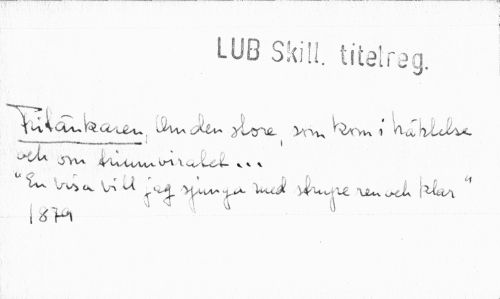 LUB Skill. titelreg.
Fritänkaren, Om den store, som kom i häktelse
och om triumviratet...
"En visa vill jag sjunga med strupe ren och klar"
1879